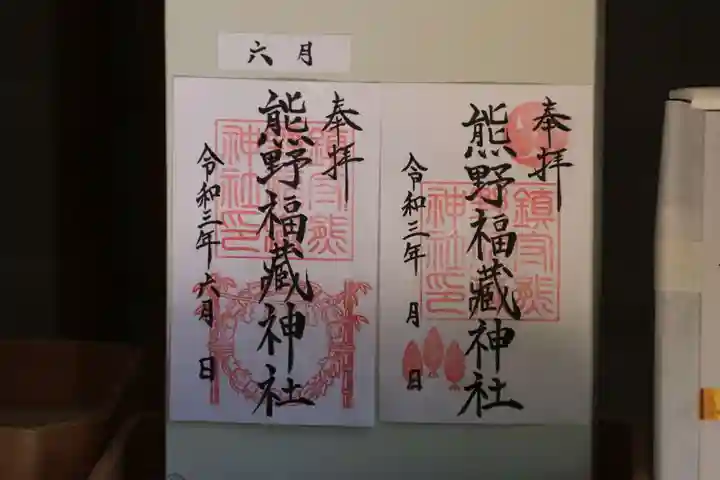 六月
奉拝
熊野福藏神社
令和三年六月 日
奉拝
熊野福藏神社
令和三年 月 日